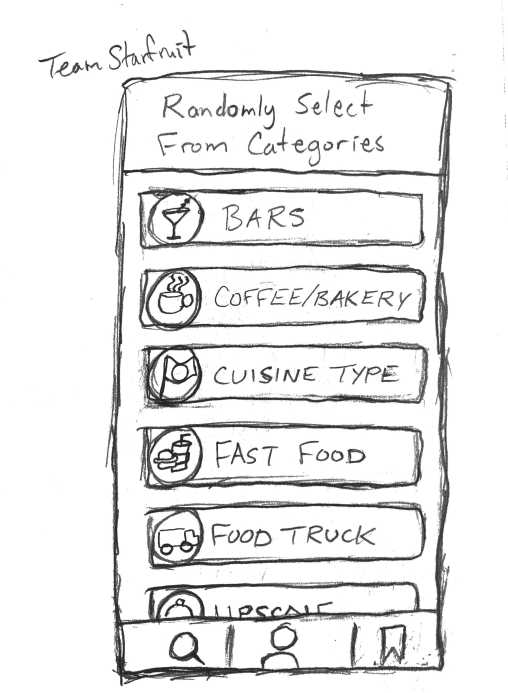 Team Starfruit
Randomly Select
From Categories
BARS
COFFEE/BAKERY
CUISINE TYPE
FAST FOOD
FOOD TRUCK
UPSCALE